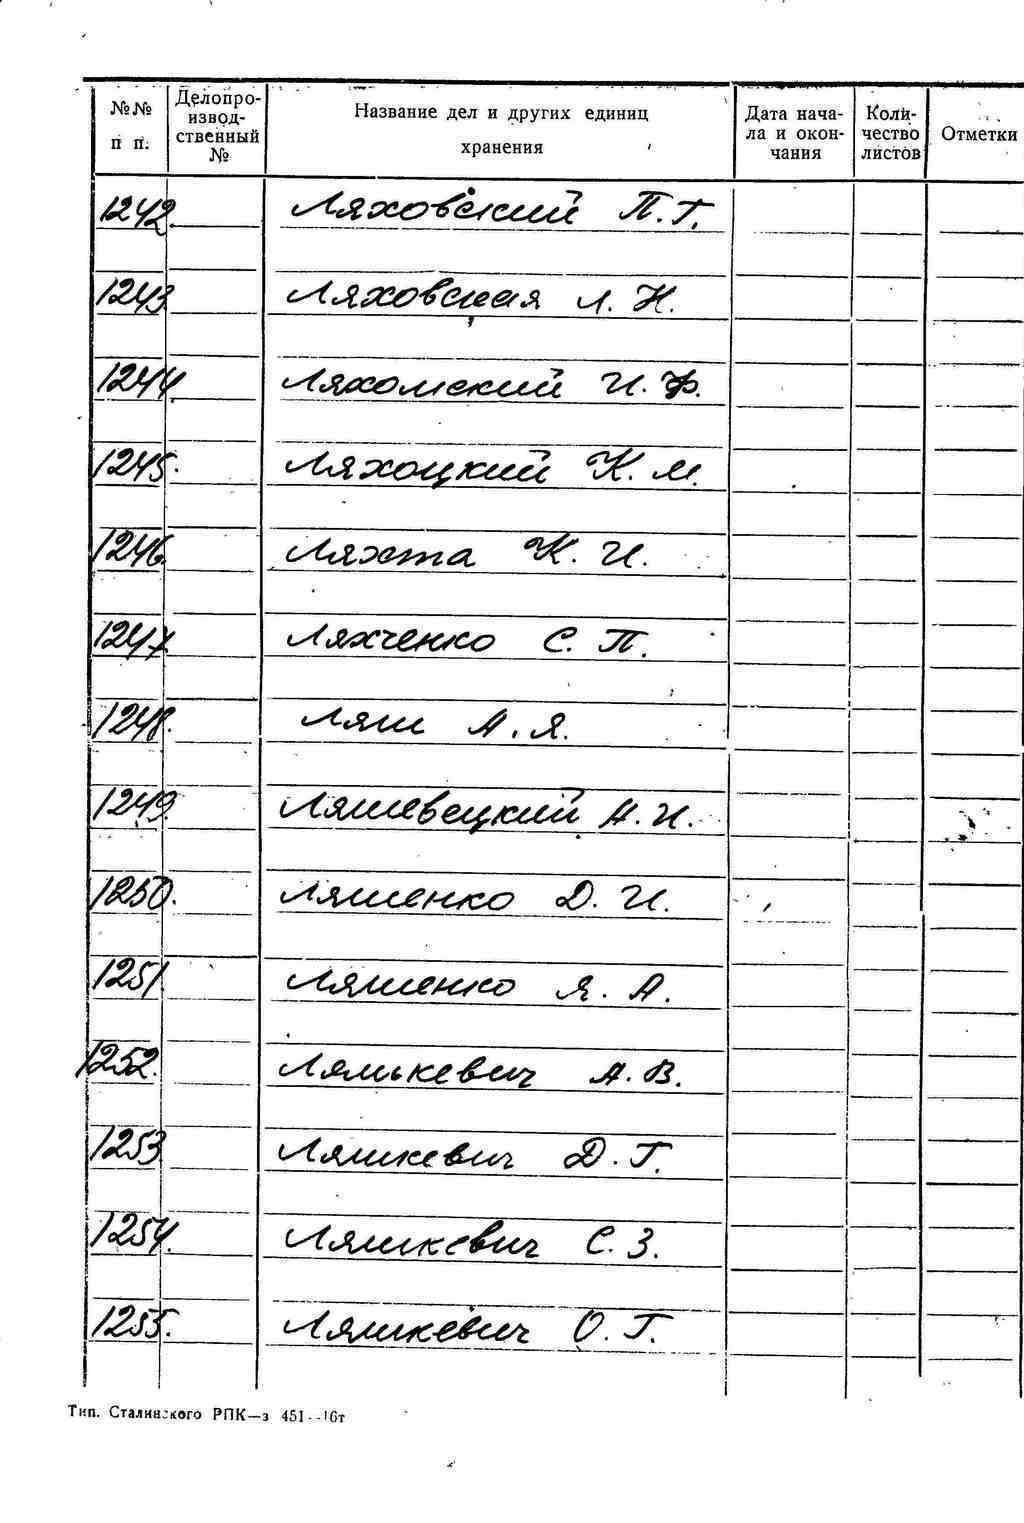 №№ п п. Делопроизводственный № Название дел и других единиц хранения Дата начала и окончания Количество листов Отметки
1242. Ляховский П. Г.
1243. Ляховская Л. Н.
1244. Ляхомский И. Ф.
1245. Ляхоцкий К. М.
1246. Ляхта К. И.
1247. Ляхченко С. П.
1248. Ляш А. Я.
1249. Ляшевецкий А. И.
1250. Ляшенко Д. И.
1251. Ляшенко Я. А.
1252. Ляшкевич А. В.
1253. Ляшкевич Д. Г.
1254. Ляшкевич С. З.
1255. Ляшкевич О. Г.
Тип. Сталинского РПК—з 451--16т